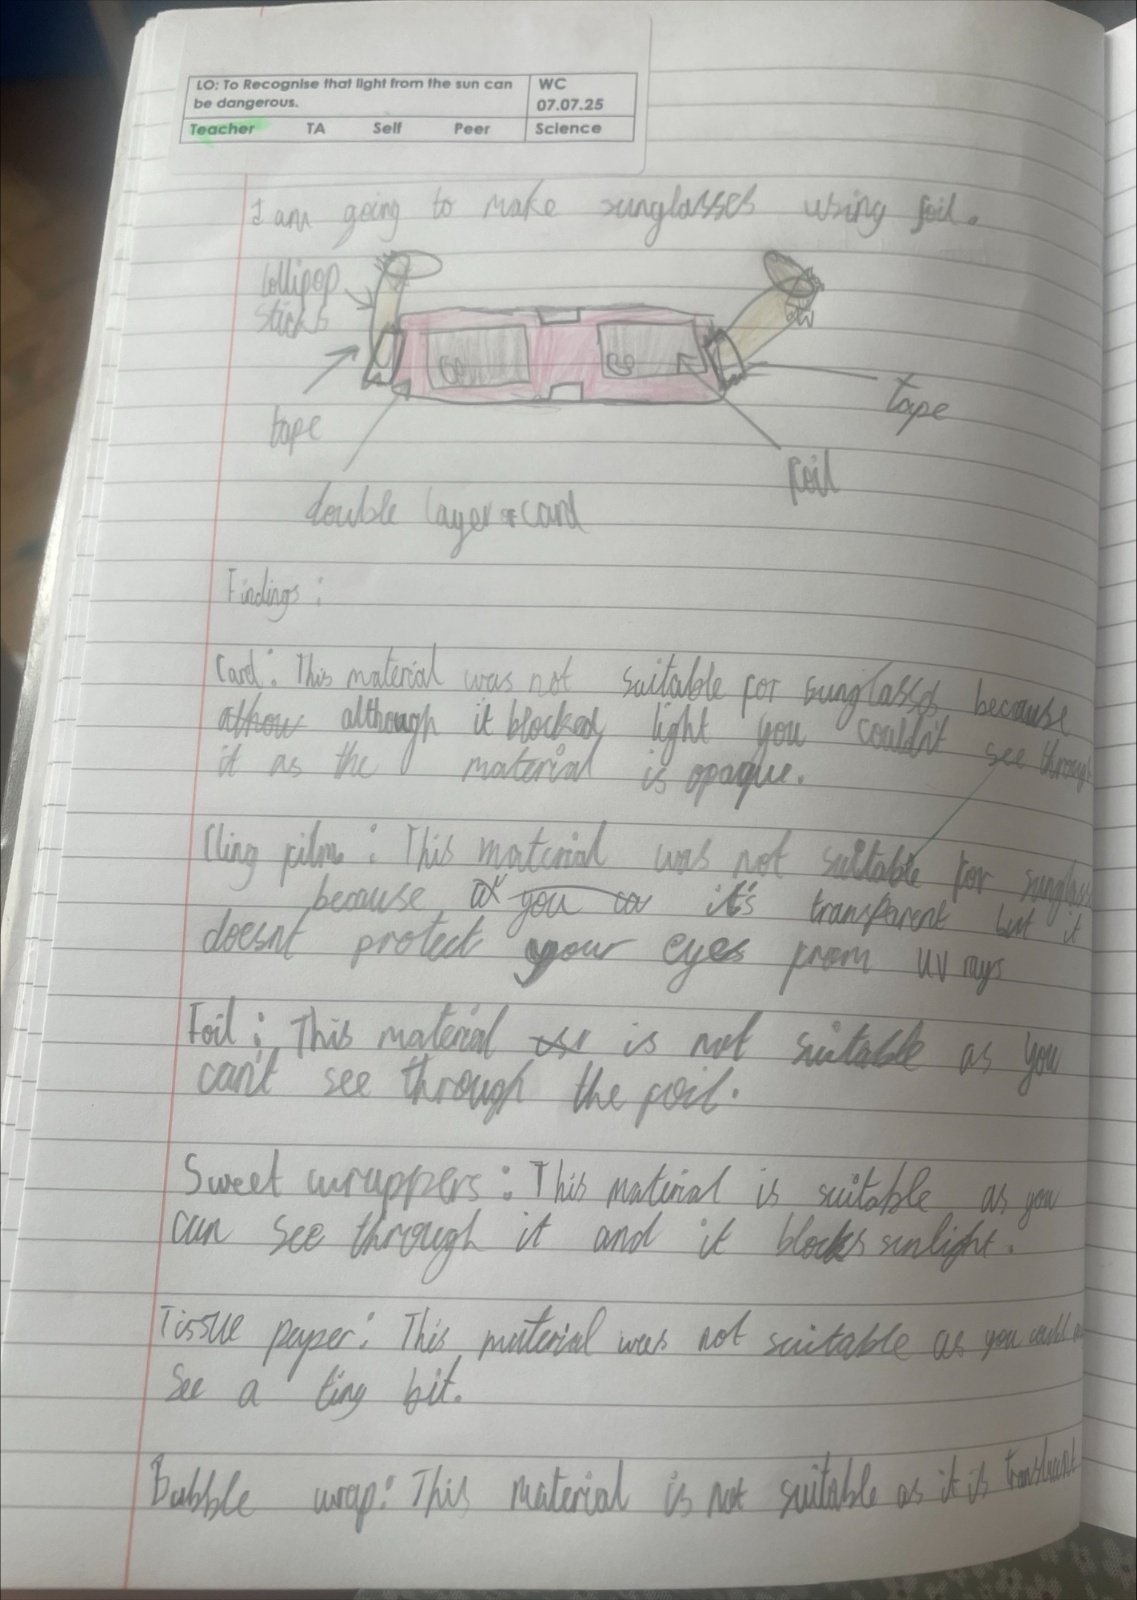 LO: To Recognise that light from the sun can
be dangerous.
WC
07.07.25
Teacher TA Self Peer
Science
I am going to make sunglasses using foil.
lollipop
sticks
tape
tape
foil
double layer of card
Findings:
Card: This material was not suitable for sunglasses because
although it blocked light you couldn't see through
it as the material is opaque.
Cling film: This material was not suitable for sunglass
because it's transparent but it
doesnt protect your eyes from UV rays
Foil: This material is not suitable as you
can't see through the foil.
Sweet wrappers: This material is suitable as you
can see through it and it blocks sunlight.
Tissue paper: This material was not suitable as you could
see a tiny bit.
Bubble wrap: This material is not suitable as it is translucent